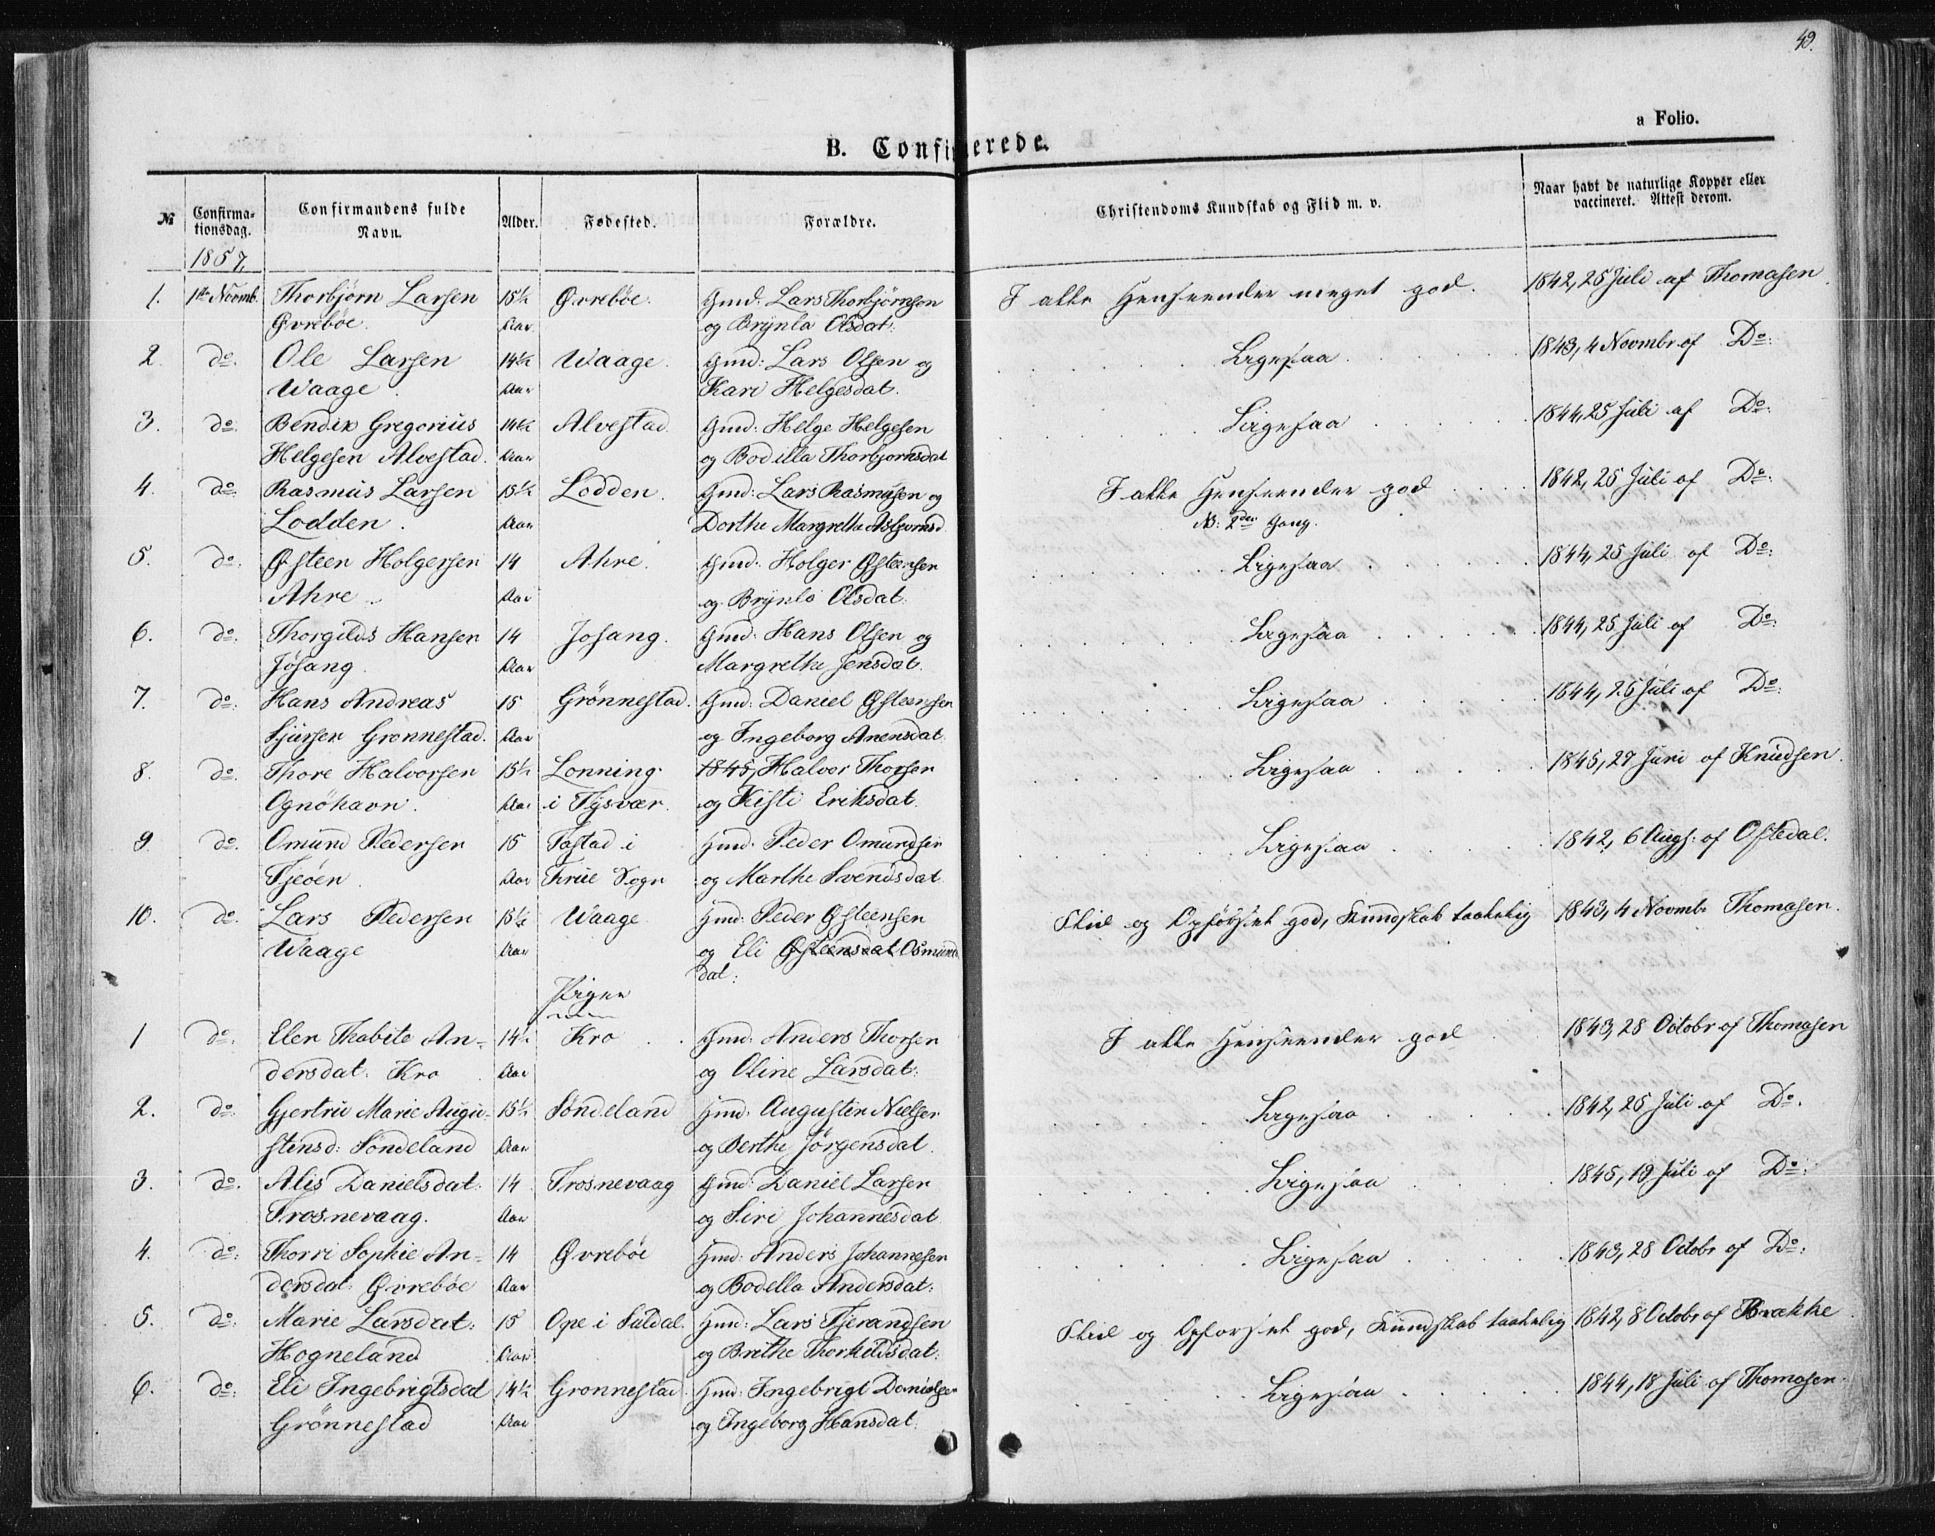 49.
a Folio.
B. Confirmerede.
№ Confirma-tionsdag. Confirmandens fulde Navn. Alder. Fødested. Forældre. Christendoms Kundskab og Flid m. v. Naar havt de naturlige Kopper eller vaccineret. Attest derom.
1857,
1. 1ste Novmb. Thorbjørn Larsen 15½ Øvrebøe. Gmd: Lars Thorbjørnsen I alle Henseender meget god. 1842, 25 Juli af Thomasen.
Øvrebøe. Aar og Brynla Olsdat:
2. do. Ole Larsen 14½ Waage. Gmd: Lars Olsen og Ligesaa 1843, 4 Novmbr af Do:
Waage. Aar Kari Helgesdat.
3. do. Bendix Gregorius 14½ Alvestad. Gmd: Helge Helgesen Ligesaa 1844, 25 Juli af Do:
Helgesen Alvestad. Aar og Bodilla Thorbjornsdat
4. do. Rasmus Larsen 15½ Lodden. Gmd: Lars Rasmusen og I alle Henseender god 1842, 25 Juli af Do:
Lodden. Aar Dorthe Margrethe Asbjornsd. NB: 2den Gang.
5. do. Østeen Holgersen 14 Ahre. Gmd: Holger Østeensen Ligesaa 1844, 25 Juli af Do:
Ahre. Aar og Brynlo Olsdat.
6. do. Thorgilds Hansen 14 Josang. Gmd: Hans Olsen og Ligesaa 1844, 25 Juli af Do:
Jøsang. Aar Margrethe Jensdat.
7. do. Hans Andreas 15 Grønnestad. Gmd: Daniel Østeensen Ligesaa 1844, 25 Juli af Do:
Sjursen Grønnestad. Aar og Ingeborg Anensdat.
8. do. Thore Halvorsen 15½ Lonning 1845, Halvor Thorsen Ligesaa 1845, 27 Juni af Knudsen.
Ognöhavn. Aar i Tysvær. og Kisti Eriksdat.
9. do. Omund Pedersen 15 Tastad i Gmd: Peder Omundsen Ligesaa 1842, 6 Augs: af Oftedal.
Fjeöen. Aar Frue Sogn og Marthe Svendsdat
10. do. Lars Pedersen 15½ Waage Gmd: Peder Østeensen Flid og Opførsel god, Kundskab taalelig 1843, 4 Novmbr Thomasen.
Waage Aar og Eli Østeensdat Osmunds
dat:
Piger
1 do: Elen Thabite An- 14½ Kro Gmd: Anders Thorsen I alle Henseender god 1843, 28 Octobr af Thomasen
dersdat: Kro Aar og Oline Larsdat:
2. do: Gjertru Marie Augu- 15½ Söndeland Gmd: Augustin Nielsen Ligesaa 1842, 25 Juli af Do.
stensd: Söndeland Aar og Berthe Jørgensdat.
3. do. Alis Danielsdat: 14 Frosnevaag Gmd: Daniel Larsen Ligesaa 1845, 19 Juli af Do:
Frosnevaag. Aar og Siri Johannesdat
4. do: Thorri Sophie An- 14 Øvrebøe Gmd: Anders Johannesen Ligesaa 1843, 28 Octobr af Do:
dersdat: Øvrebøe Aar og Bodella Andersdat:
5. do: Marie Larsdat: 15 Ope i Suldal Gmd: Lars Tjerandsen Flid og Opførsel god, Kundskab taalelig 1842, 8 Octobr af Brakke.
Hogneland Aar og Brethe Thorkildsdat:
6. do: Eli Ingebrigtsdat 14½ Gronnestad. Gmd: Ingebrigt Danielsen Ligesaa 1844, 18 Juli af Thomasen.
Grønnestad Aar og Ingeborg Hansdat: